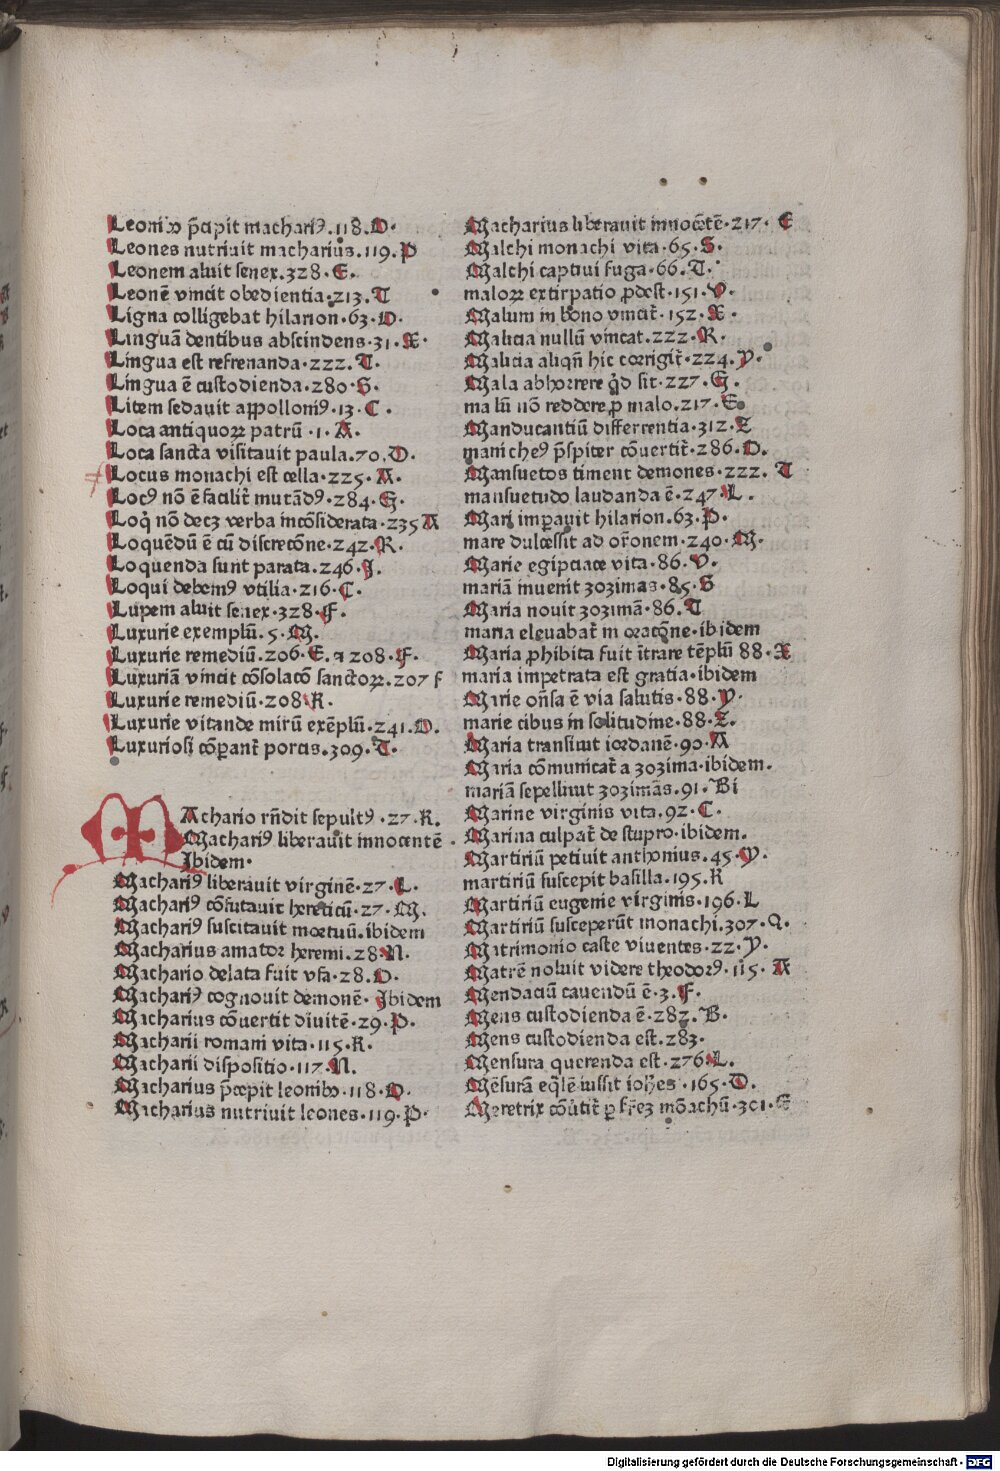 Leonibꝰ p̄cipit machariꝰ.118.O.
Leones nutriuit macharius.119.P
Leonem aluit senex.328.E.
Leonē vincit obedientia.213.T
Ligna colligebat hilarion.63.O.
Linguā dentibus abscindens.31.X.
Lingua est refrenanda.222.T.
Lingua ē custodienda.280.S.
Litem sedauit appolloniꝰ.13.C.
Loca antiquoꝝ patrū.1.A.
Loca sancta visitauit paula.70.D.
Locus monachi est cella.225.A.
Locꝰ nō ē facilit̄ mutādꝰ.284.G.
Loq̇ nō decꝫ verba incōsiderata.235 A
Loquēdū ē cū discretōne.242.R.
Loquenda sunt parata.246.J.
Loqui debemꝰ vtilia.216.C.
Lupem aluit senex.328.F.
Luxurie exemplū.5.M.
Luxurie remediū.206.E.⁊ 208.F.
Luxuriā vincit cōsolacō sanctoꝝ.207 f
Luxurie remediū.208.R.
Luxurie vitande mirū exēplū.241.O.
Luxuriosi cōpant̄ porcis.309.T.
MAchario rn̄dit sepultꝰ.27.R.
Machariꝰ liberauit innocentē.
Ibidem.
Machariꝰ liberauit virginē.27.L.
Machariꝰ cōfutauit hereticū.27.M.
Machariꝰ suscitauit mortuū.ibidem
Macharius amator heremi.28.N.
Machario delata fuit vsa.28.O.
Machariꝰ cognouit demonē.Ibidem
Macharius cōuertit diuitē.29.P.
Macharii romani vita.115.R.
Macharii dispositio.117.N.
Macharius p̄cepit leonibꝰ.118.O.
Macharius nutriuit leones.119.P.
Macharius liberauit innocētē.217.E
Malchi monachi vita.65.S.
Malchi captiui fuga.66.T.
maloꝝ extirpatio ꝓdest.151.V.
Malum in bono vincit̄.152.X.
Malicia nullū vincat.222.R.
Malicia aliqn̄ hic corrigit̄.224.Y.
Mala abhorrere q̇d sit.227.G.
malū nō reddere ꝓ malo.217.E
Manducantiū differentia.312.Z
manicheꝰ p̄spiter cōuertit̄.286.O.
Mansuetos timent demones.222.T
mansuetudo laudanda ē.247.L.
Mari imꝑauit hilarion.63.P.
mare dulcessit ad or̄onem.240.M.
Marie egipciace vita.86.V.
mariā inuenit zozimas.85.S
Maria nouit zozimā.86.T
maria eleuabat̄ in oracōne.ibidem
Maria ꝓhibita fuit ītrare tēplū 88.X
maria impetrata est gratia.ibidem
Marie on̄sa ē via salutis.88.Y.
marie cibus in solitudine.88.Z.
Maria transiuit iordanē.90.A
Maria cōmunicat̄ a zozima.ibidem.
mariā sepelliuit zozimas.91.Bi
Marine virginis vita.92.C.
Marina culpat̄ de stupro.ibidem.
Martiriū petiuit anthonius.45.Y.
martiriū suscepit basilla.195.R
Martiriū eugenie virginis.196.L
Martiriū susceperūt monachi.307.Q.
Matrimonio caste viuentes.22.Y.
Matrē noluit videre theodorꝰ.115.A
Mendaciū cauendū ē.3.F.
Mens custodienda ē.282.B.
Mens custodienda est.283.
Mensura querenda est.276.L.
Mēsurā eq̄lē iussit ioh̄es.165.D.
Meretrix cōūtit̄ ꝑ fr̄eꝫ mōachū.301.E
Digitalisierung gefördert durch die Deutsche Forschungsgemeinschaft - DFG